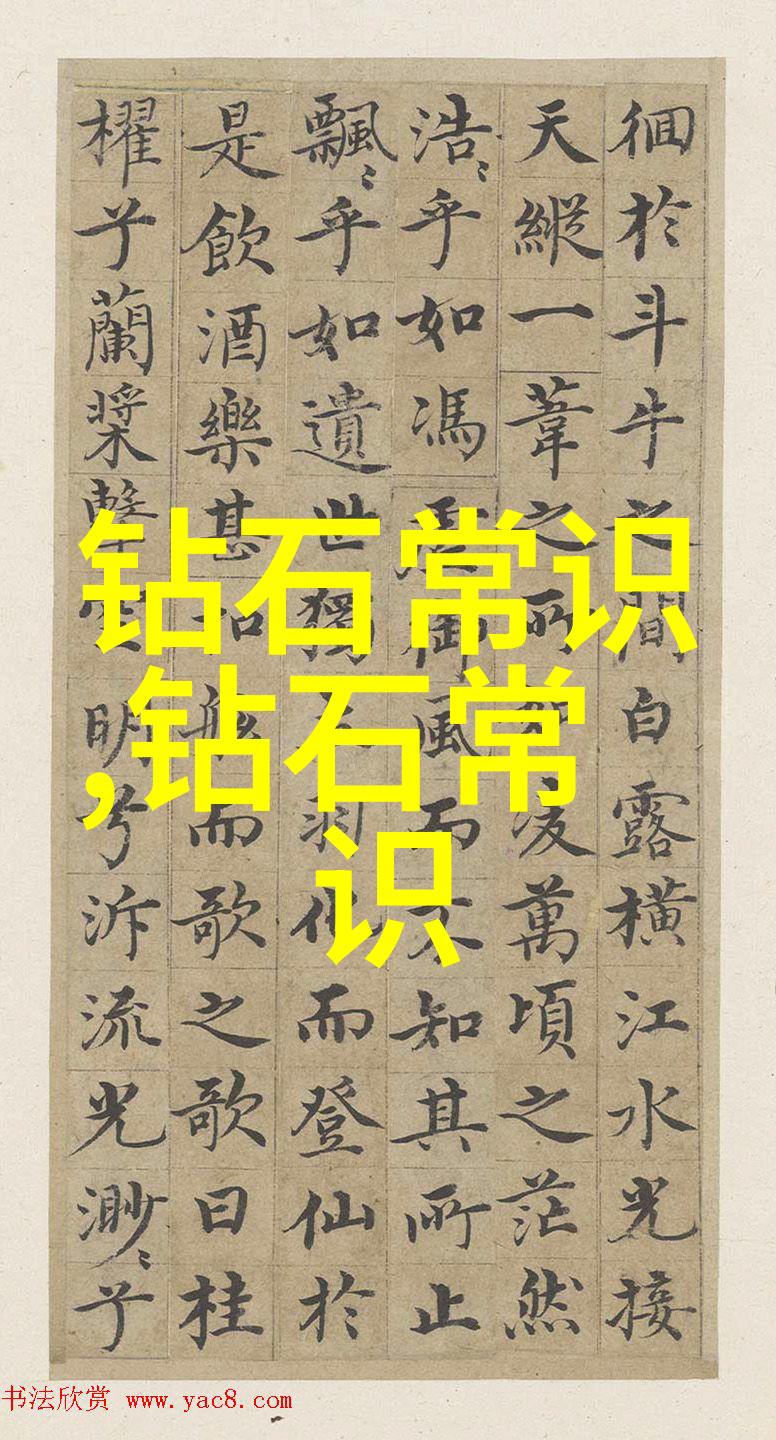 徊於斗牛之間白露橫江水光接
天縱一葦之所如凌萬頃之茫然
浩〻乎如馮虛御風而不知其所止
飄〻乎如遺世獨立羽化而登仙於
是飲酒樂甚扣舷而歌之歌曰桂
櫂兮蘭槳擊空明兮泝流光渺〻兮
钻石常识
,钻石常
识
书法欣赏 www.yac8.com